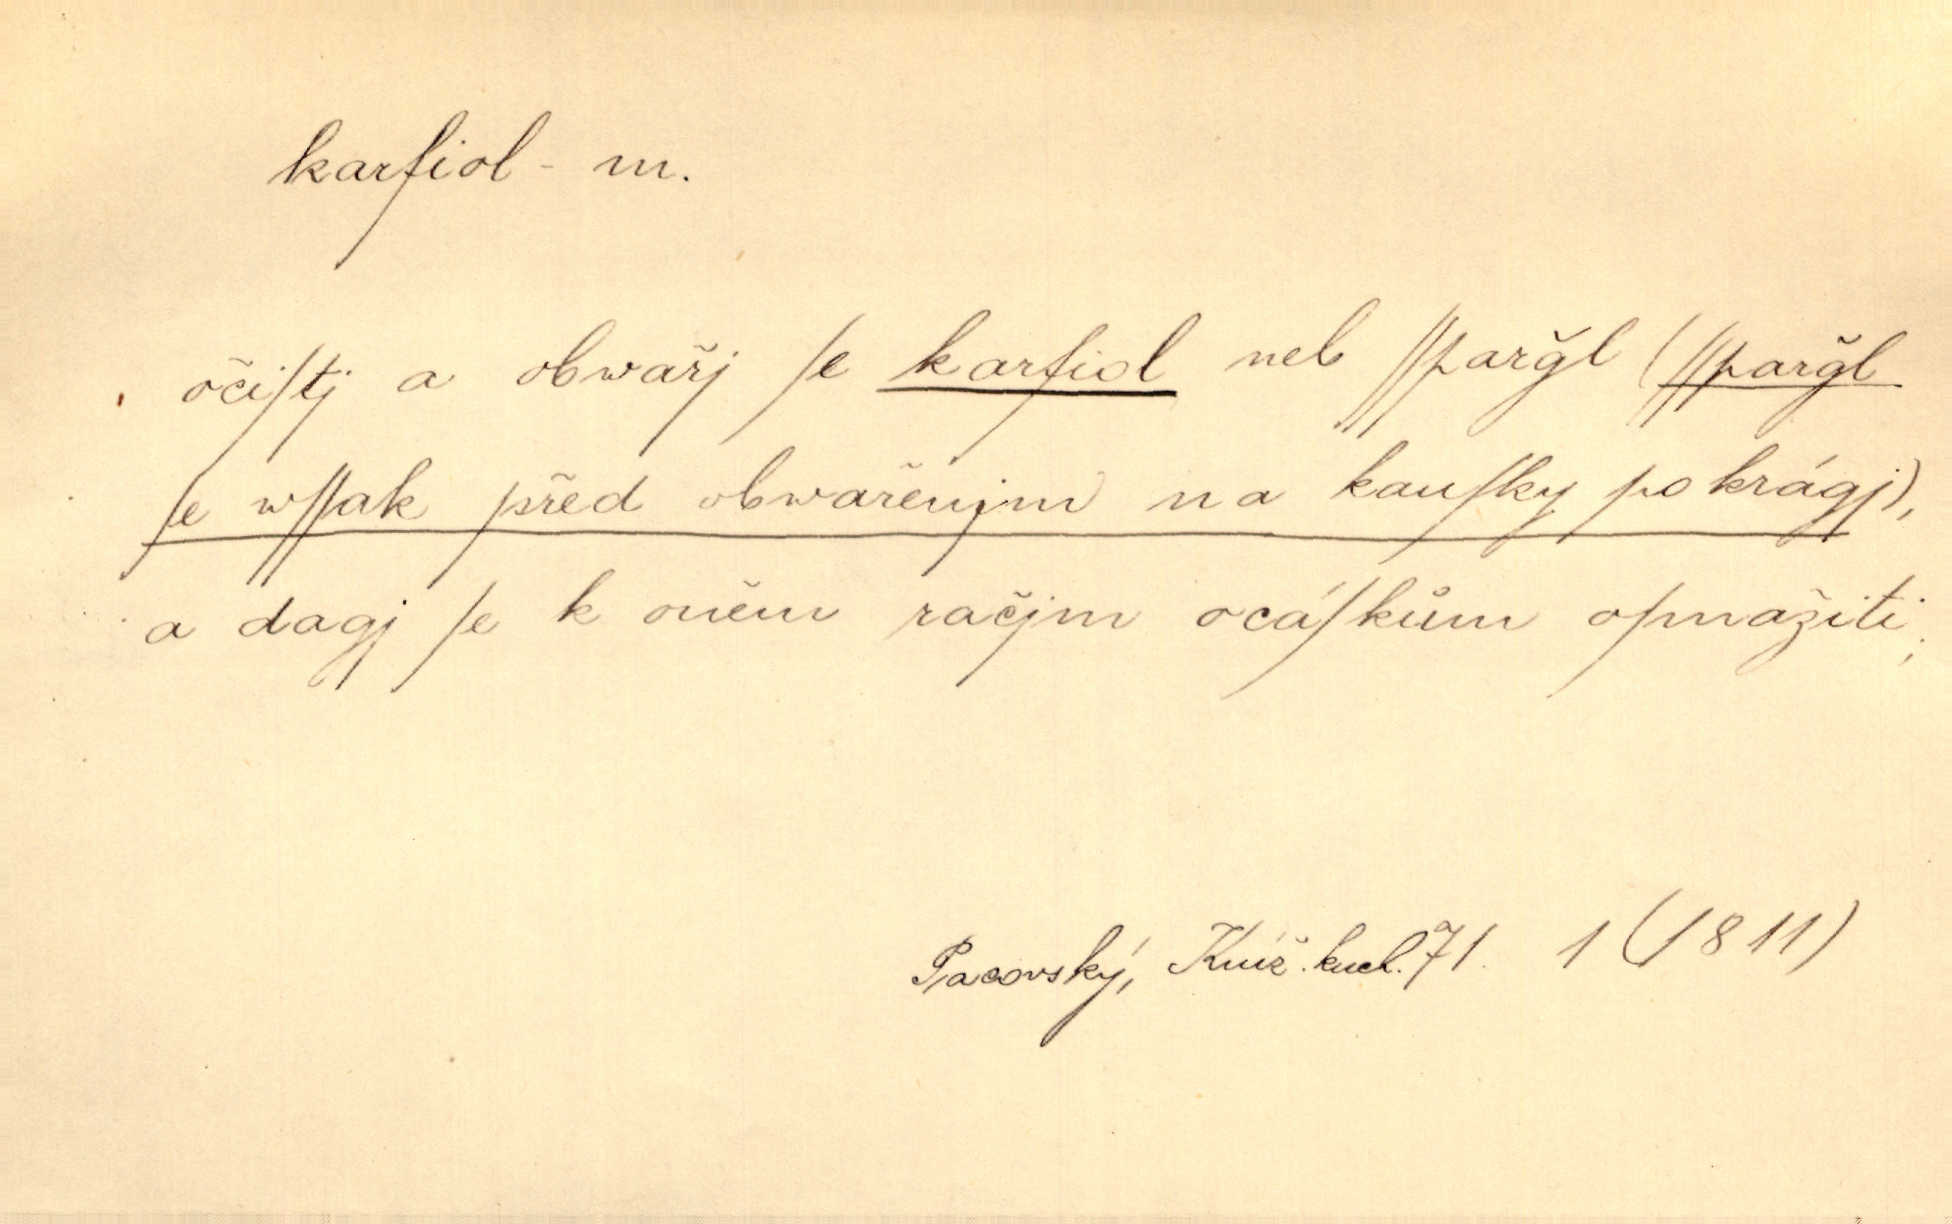 karfiol - m.
očiſtj a obwařj ſe karfiol neb ſſpargl (ſſpargl
ſe wſſak před obwařenjm na kauſky pokrágj),
a dagj ſe k oněm račjm ocáſkům oſmažiti;
Pacovský, Kniž. kuch. 71. 1 (1811)